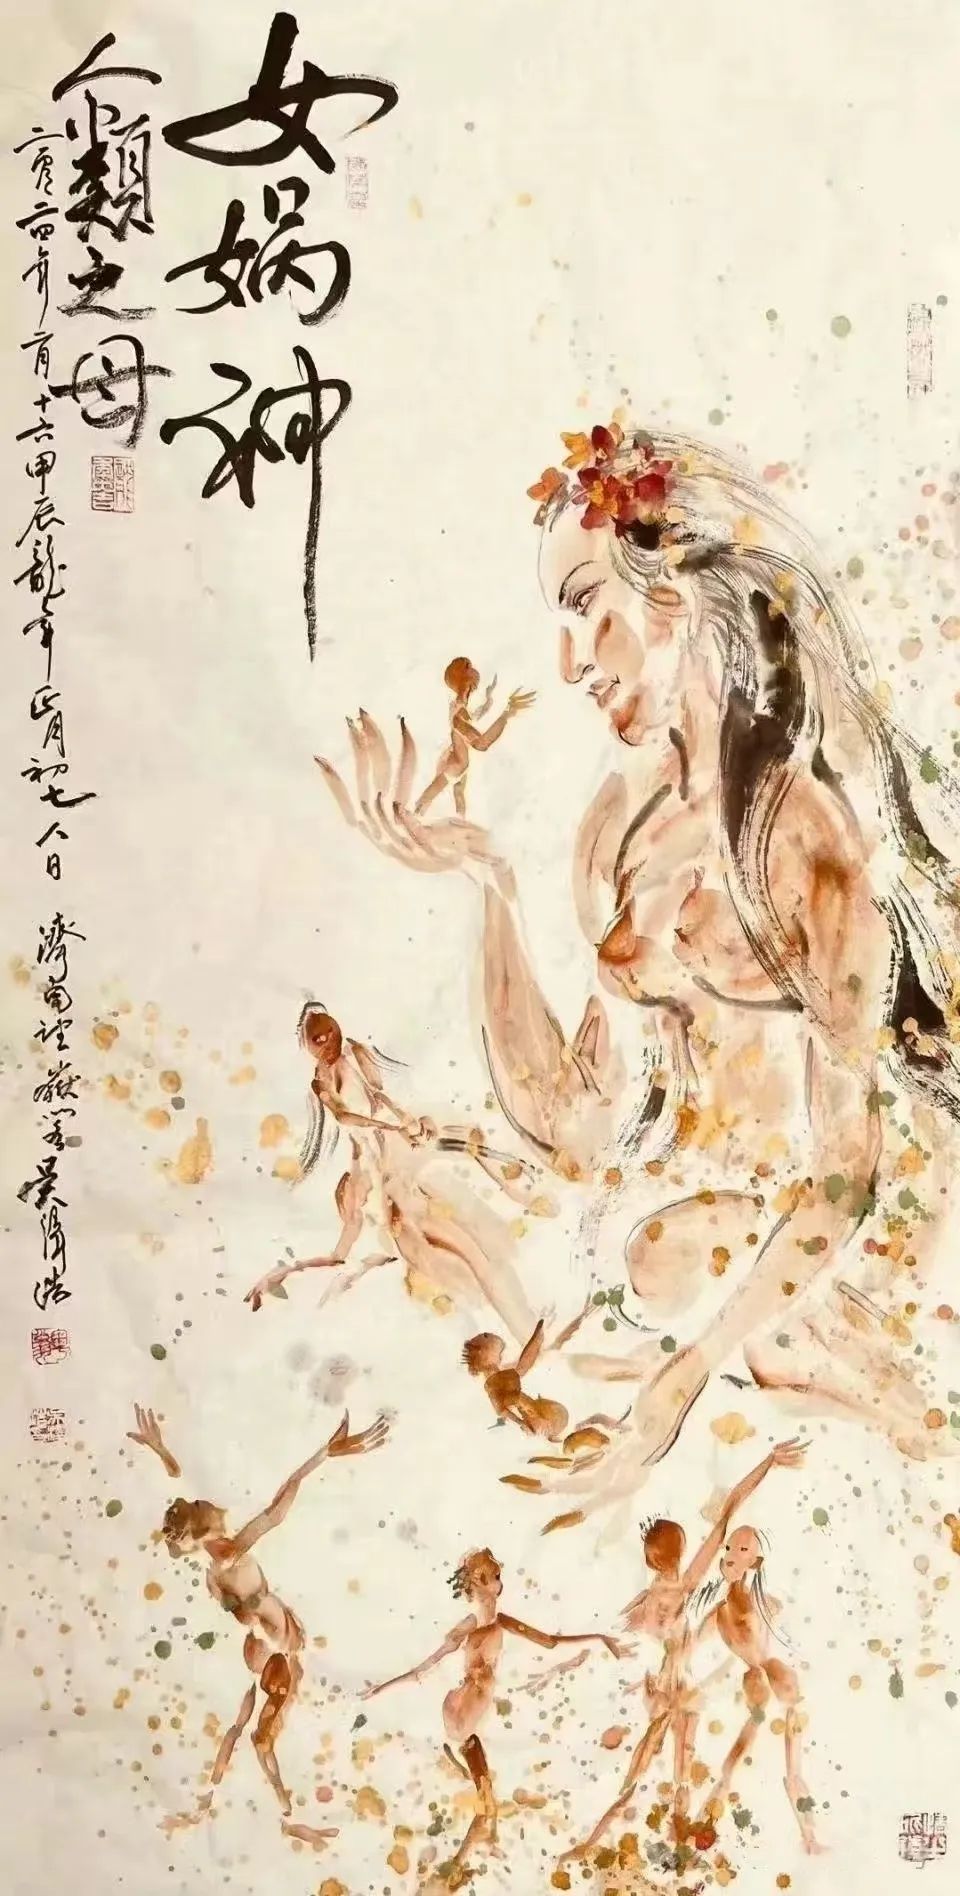 女娲神
人類之母
二零二四年二月十六甲辰龍年正月初七人日 濟南望嶽閣吳澤浩